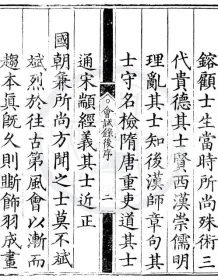 鎔顧士生當時所尚殊術三
代貴德其士賢西漢崇儒明
理亂其士知後漢師章句其
士守名檢隋唐重吏道其士
會試錄後序
二
通宋顓經義其士近正
國朝兼所尚方聞之士莫不斌
斌烈於往古第風會以漸而
趨本真既久則斷飾羽成畫